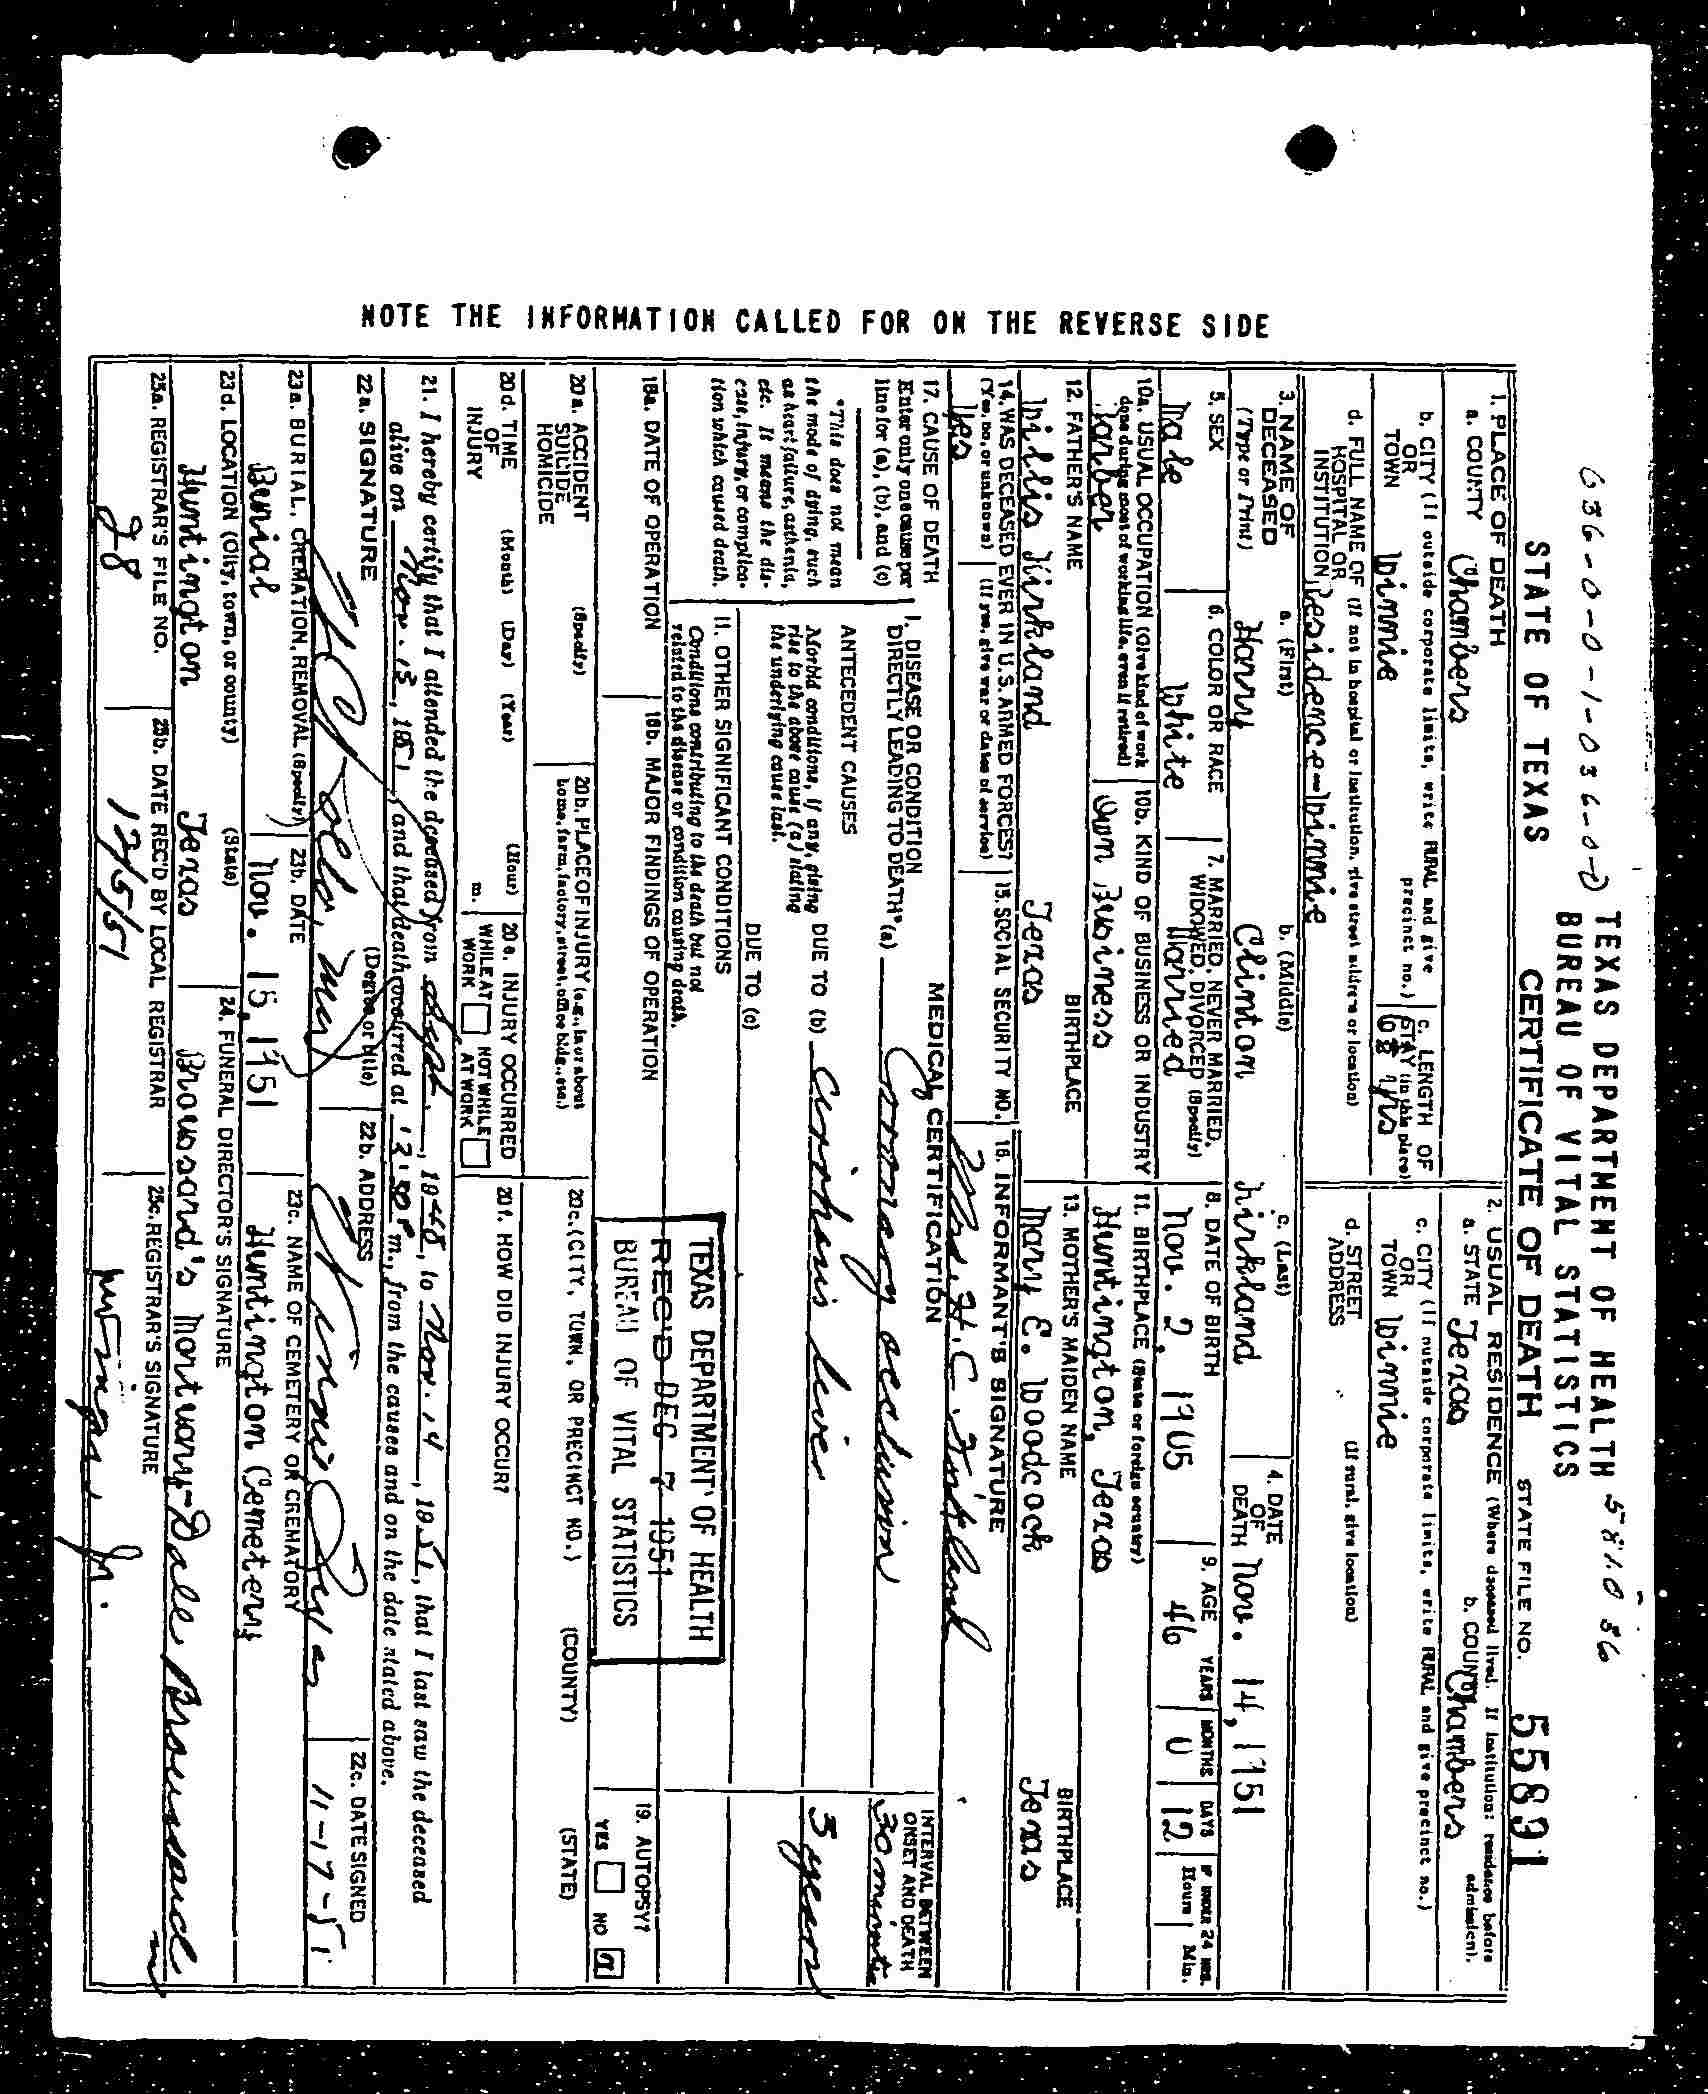 636-0-0-1-036-0-0
TEXAS DEPARTMENT OF HEALTH 581.0 36
BUREAU OF VITAL STATISTICS
STATE OF TEXAS CERTIFICATE OF DEATH STATE FILE NO. 55891
1. PLACE OF DEATH
a. COUNTY Chambers
2. USUAL RESIDENCE (Where deceased lived. If institution: residence before admission).
a. STATE Texas b. COUNTY Chambers
b. CITY (If outside corporate limits, write RURAL and give precinct no.)
OR
TOWN Winnie
c. LENGTH OF STAY (in this place)
yrs
c. CITY (If outside corporate limits, write RURAL and give precinct no.)
OR
TOWN Winnie
d. FULL NAME OF (If not in hospital or institution, give street address or location)
HOSPITAL OR
INSTITUTION Residence-Winnie
d. STREET (If rural, give location)
ADDRESS
3. NAME OF DECEASED (Type or Print)
a. (First) Harry
b. (Middle) Clinton
c. (Last) Kirkland
4. DATE OF DEATH Nov. 14, 1951
5. SEX
Male
6. COLOR OR RACE
White
7. MARRIED, NEVER MARRIED, WIDOWED, DIVORCED (Specify)
Married
8. DATE OF BIRTH
Nov. 2, 1905
9. AGE YEARS MONTHS DAYS IF UNDER 24 HRS. Hours Min.
46 0 12
10a. USUAL OCCUPATION (Give kind of work done during most of working life, even if retired)
Barber
10b. KIND OF BUSINESS OR INDUSTRY
Own Business
11. BIRTHPLACE (State or foreign country)
Huntington, Texas
12. FATHER'S NAME BIRTHPLACE
Willis Kirkland Texas
13. MOTHER'S MAIDEN NAME BIRTHPLACE
Mary E. Woodcock Texas
14. WAS DECEASED EVER IN U.S. ARMED FORCES?
(Yes, no, or unknown) (If yes, give war or dates of service)
Yes
15. SOCIAL SECURITY NO.
16. INFORMANT'S SIGNATURE
Mrs. H. C. Kirkland
17. CAUSE OF DEATH
Enter only one cause per line for (a), (b), and (c)
*This does not mean the mode of dying, such as heart failure, asthenia, etc. It means the disease, injury, or complication which caused death.
MEDICAL CERTIFICATION
INTERVAL BETWEEN ONSET AND DEATH
I. DISEASE OR CONDITION
DIRECTLY LEADING TO DEATH* (a) Coronary occlusion 30 minutes
ANTECEDENT CAUSES
Morbid conditions, if any, giving rise to the above cause (a) stating the underlying cause last.
DUE TO (b) Cirrhosis liver 5 years
DUE TO (c)
II. OTHER SIGNIFICANT CONDITIONS
Conditions contributing to the death but not related to the disease or condition causing death.
TEXAS DEPARTMENT OF HEALTH
REC'D DEC 7 1951
BUREAU OF VITAL STATISTICS
18a. DATE OF OPERATION
18b. MAJOR FINDINGS OF OPERATION
19. AUTOPSY?
YES NO
20a. ACCIDENT (Specify)
SUICIDE
HOMICIDE
20b. PLACE OF INJURY (e.g., in or about home, farm, factory, street, office bldg., etc.)
20c. (CITY, TOWN, OR PRECINCT NO.) (COUNTY) (STATE)
20d. TIME (Month) (Day) (Year) (Hour)
OF
INJURY m.
20e. INJURY OCCURRED
WHILE AT WORK NOT WHILE AT WORK
20f. HOW DID INJURY OCCUR?
21. I hereby certify that I attended the deceased from Sept., 1948, to Nov. 14, 1951, that I last saw the deceased
alive on Nov. 13, 1951, and that death occurred at 3:30 P m., from the causes and on the date stated above.
22a. SIGNATURE (Degree or title)
MD
22b. ADDRESS
Winnie Texas
22c. DATE SIGNED
11-17-51
23a. BURIAL, CREMATION, REMOVAL (Specify)
Burial
23b. DATE
Nov. 15, 1951
23c. NAME OF CEMETERY OR CREMATORY
Huntington Cemetery
23d. LOCATION (City, town, or county) (State)
Huntington Texas
24. FUNERAL DIRECTOR'S SIGNATURE
Broussard's Mortuary-Dale Broussard
25a. REGISTRAR'S FILE NO.
28
25b. DATE REC'D BY LOCAL REGISTRAR
12/5/51
25c. REGISTRAR'S SIGNATURE
Jr.
NOTE THE INFORMATION CALLED FOR ON THE REVERSE SIDE